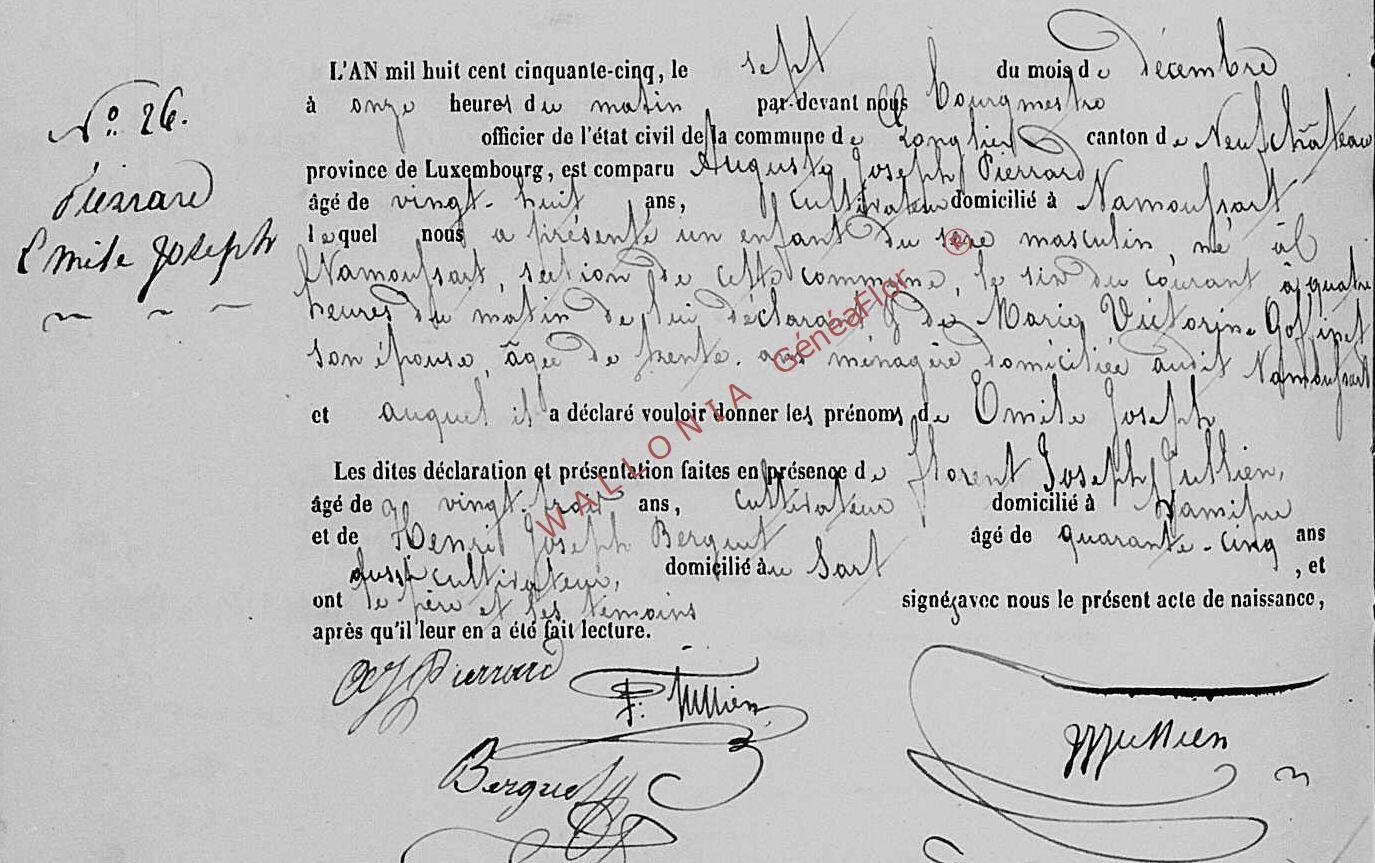 N° 26.
Pierrard
Emile Joseph
L'AN mil huit cent cinquante-cinq, le sept du mois de décembre
à onze heures du matin par-devant nous Bourgmestre
officier de l'état civil de la commune de Longlier canton de Neufchâteau
province de Luxembourg, est comparu Auguste Joseph Pierrard
âgé de vingt-huit ans, cultivateur domicilié à Namoussart
lequel nous a présenté un enfant du sexe masculin, né à
Namoussart, section de cette commune, le six du courant à quatre
heures du matin de lui déclarant & de Marie Victorine Goffinet
son épouse, âgée de trente ans ménagère domiciliée audit Namoussart
et auquel il a déclaré vouloir donner les prénoms de Emile Joseph
Les dites déclaration et présentation faites en présence de Florent Joseph Jullien,
âgé de vingt-trois ans, cultivateur domicilié à Namipre
et de Henri Joseph Berguet âgé de quarante-cinq ans
aussi cultivateur, domicilié au Sart , et
ont le père et les témoins signé avec nous le présent acte de naissance,
après qu'il leur en a été fait lecture.
AJ Pierrard
F. Jullien
Jullien
Berguet
WALLONIA GénéaFlor ®